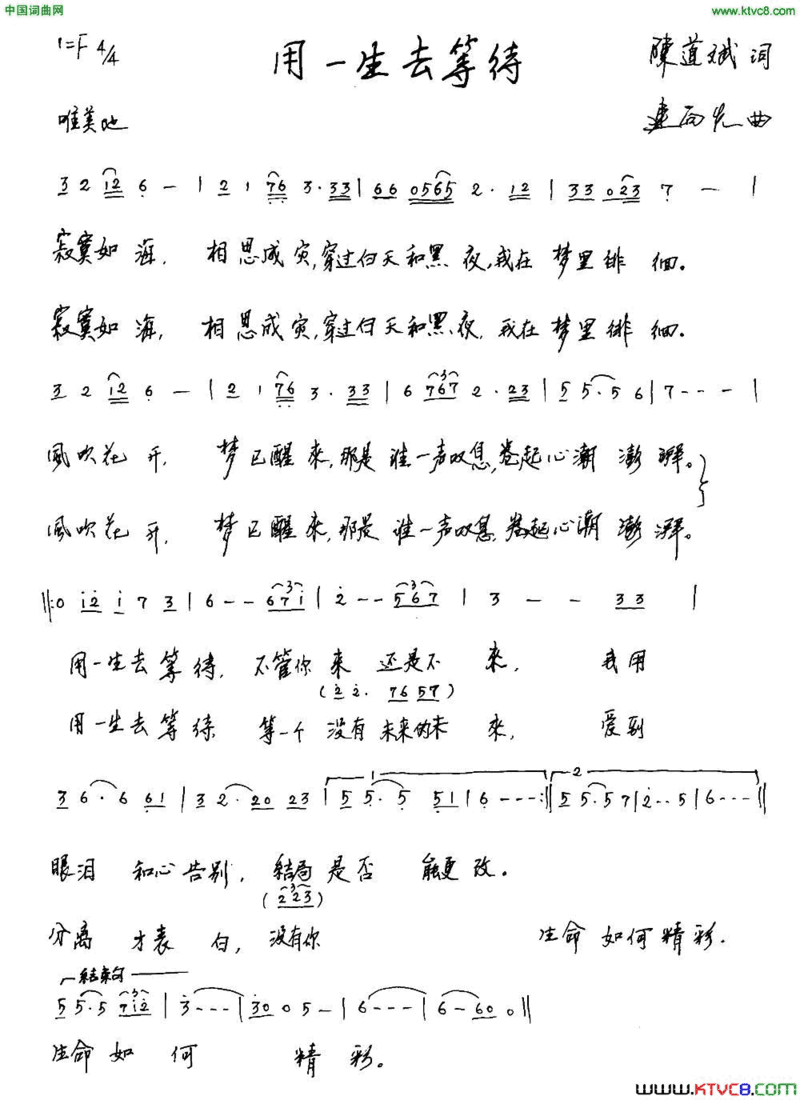 中国词曲网
www.ktvc8.com
1=F 4/4
用一生去等待
陳道斌 词
曲
唯美地
3 2 1̇2 6 – | 2 1 76 3·33 | 66 0565 2·12 | 33 023 7 – |
寂寞如海，相思成灾，穿过白天和黑夜，我在梦里徘徊。
寂寞如海，相思成灾，穿过白天和黑夜，我在梦里徘徊。
3 2 12 6 – | 2 1 76 3·33 | 6 767 2·23 | 5 5·5 6 | 7 - - - |
風吹花开，梦已醒来，那是谁一声叹息，卷起心潮澎湃。
風吹花开，梦已醒来，那是谁一声叹息，卷起心潮澎湃。
‖:0 i̇2̇ i̇ 7 3 | 6 - - 67i̇ | 2̇ - - 567 | 3 – – 33 |
用一生去等待，不管你来还是不来，我用
(2̇ 2̇· 76 57)
用一生去等待，等一个没有未来的未来，爱到
3 6·6 61 | 3 2·20 23 | 1 5 5·5 51 | 6 - - - :‖ 2 5 5·5 7 | 2··5 | 6 - - - ‖
眼泪和心告别，结局是否能更改。
(223)
分离才表白，没有你生命如何精彩．
结束句
5 5·5 7i̇2̇ | 3̇ - - - | 3̇0 0 5 – | 6 - - - | 6 – 60 0 ‖
生命如何精彩。
WWW.KTVC8.COM